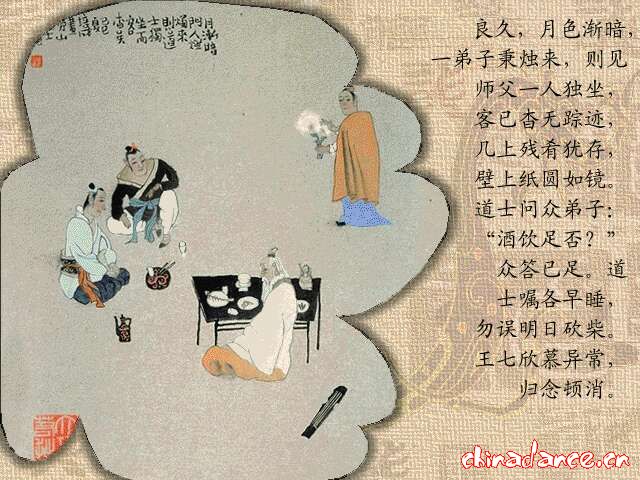 良久，月色渐暗，
一弟子秉烛来，则见
师父一人独坐，
客已杳无踪迹，
几上残肴犹存，
壁上纸圆如镜。
道士问众弟子：
“酒饮足否？”
众答已足。道
士嘱各早睡，
勿误明日砍柴。
王七欣慕异常，
归念顿消。
月渐暗
门人燃
烛来
则道
士独
坐而
客
chinadance.cn